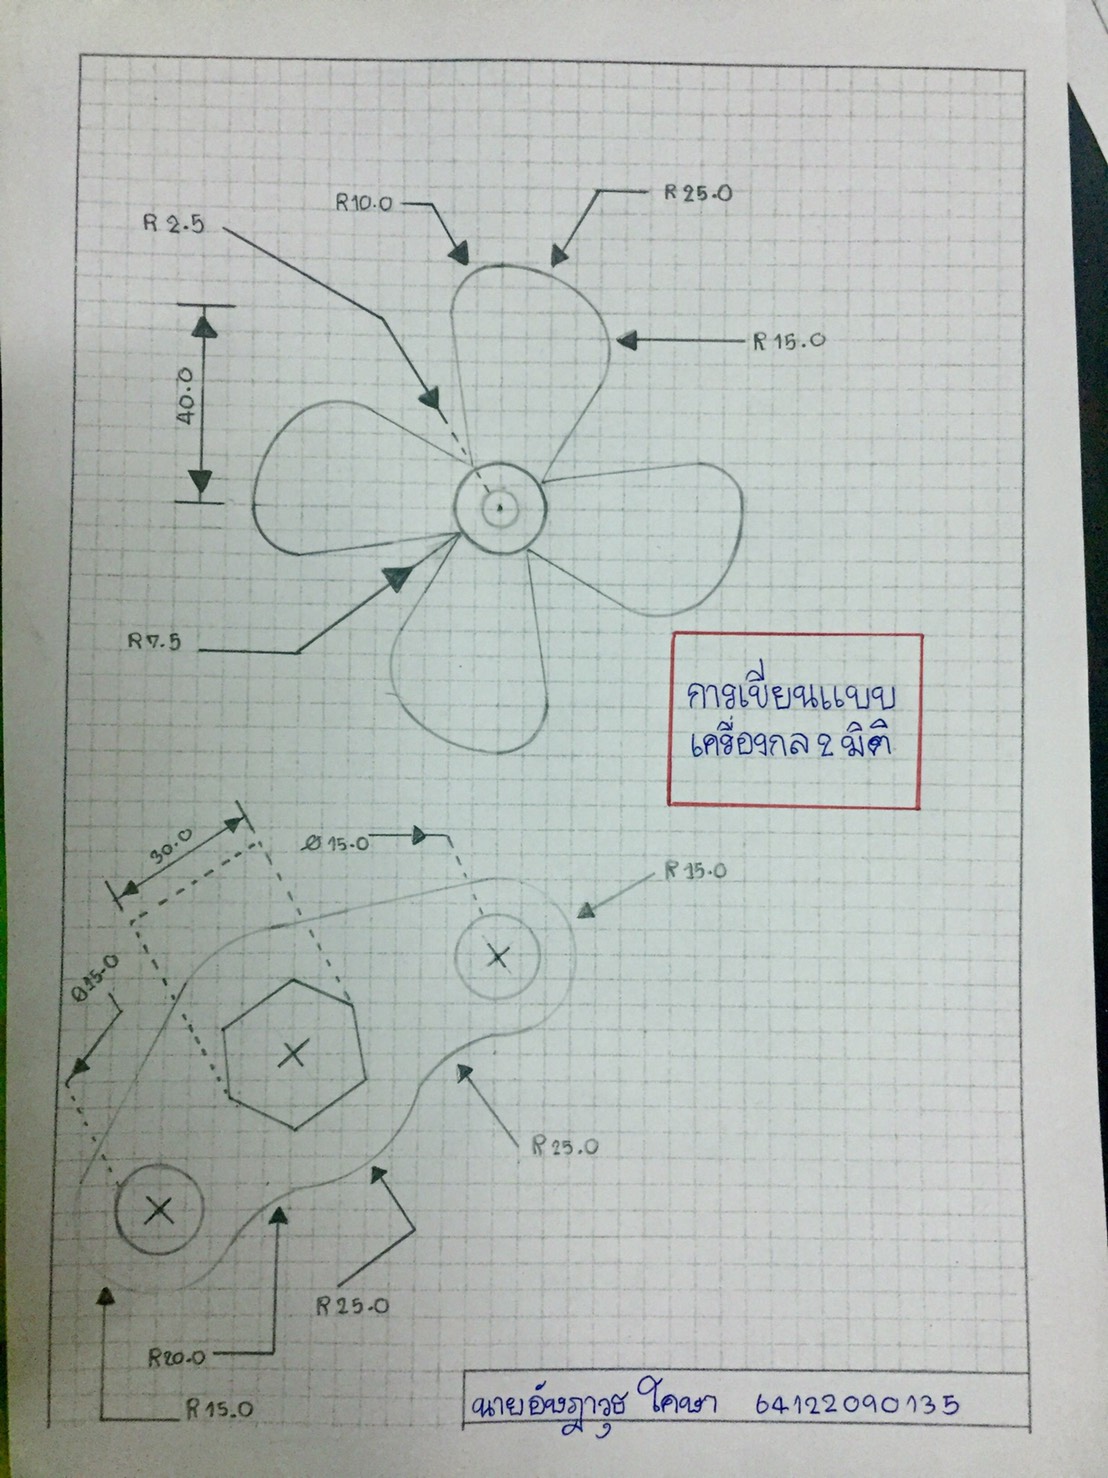 R10.0
R 25.0
R 2.5
R 15.0
40.0
R7.5
การเขียนแบบ
เครื่องกล 2 มิติ
30.0
Ø 15.0
R 15.0
Ø15.0
R 25.0
R 25.0
R20.0
R 15.0
นายอัษฎาวุธ โคษา 64122090135